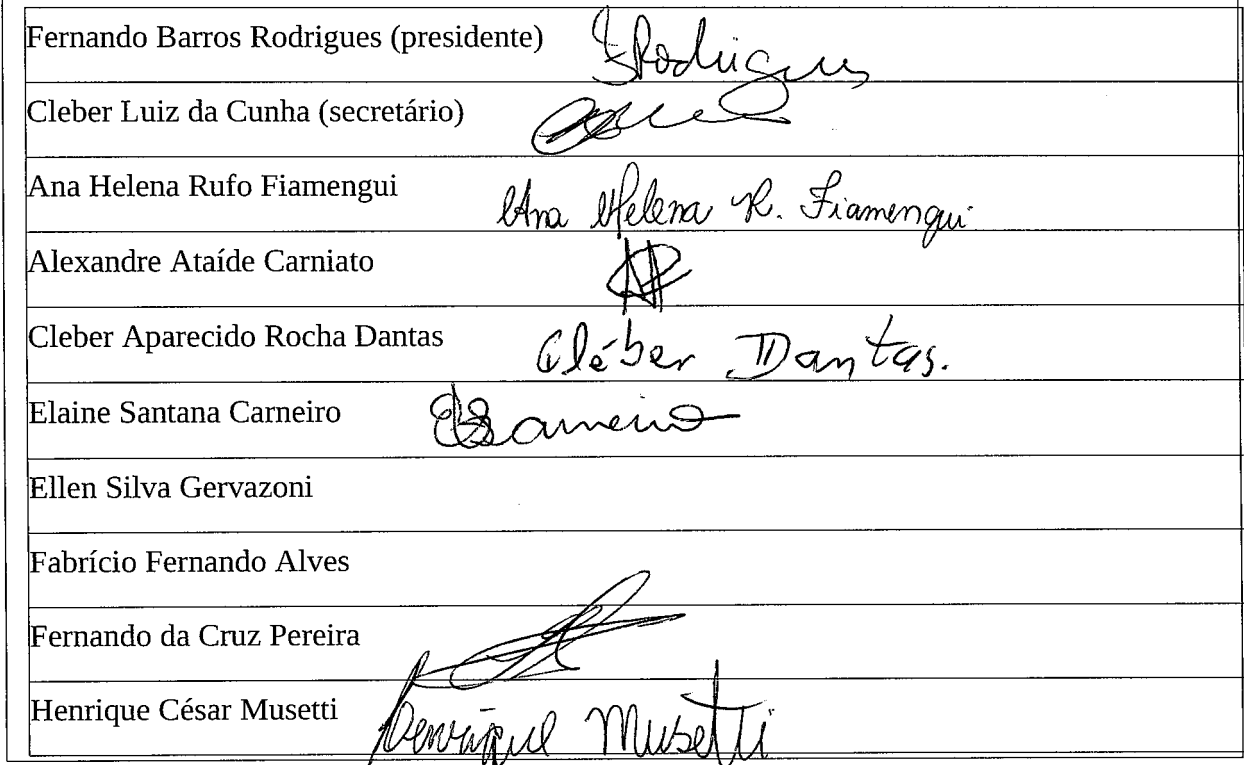 Fernando Barros Rodrigues (presidente) FRodrigues
Cleber Luiz da Cunha (secretário)
Ana Helena Rufo Fiamengui Ana Helena R. Fiamengui
Alexandre Ataíde Carniato
Cleber Aparecido Rocha Dantas Cléber Dantas.
Elaine Santana Carneiro ESCarneiro
Ellen Silva Gervazoni
Fabrício Fernando Alves
Fernando da Cruz Pereira
Henrique César Musetti Henrique Musetti